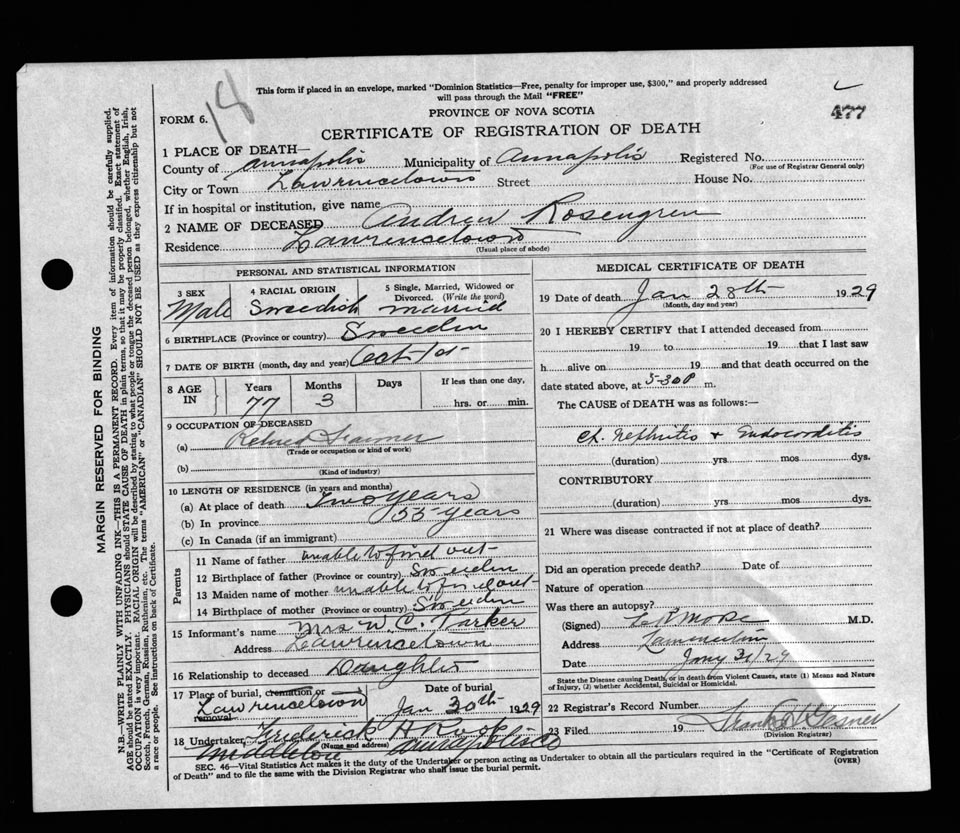 This form if placed in an envelope, marked "Dominion Statistics—Free, penalty for improper use, $300," and properly addressed
will pass through the Mail "FREE"
18
477
FORM 6.
PROVINCE OF NOVA SCOTIA
CERTIFICATE OF REGISTRATION OF DEATH
MARGIN RESERVED FOR BINDING
N.B.—WRITE PLAINLY WITH UNFADING INK—THIS IS A PERMANENT RECORD. Every item of information should be carefully supplied.
AGE should be stated EXACTLY. PHYSICIANS should STATE CAUSE OF DEATH in plain terms, so that it may be properly classified. Exact statement of
OCCUPATION is very important. RACIAL ORIGIN will be described by stating to what people or tongue the deceased person belonged, whether English, Irish,
Scotch, French, German, Russian, Ruthenian, etc. The terms "AMERICAN" or "CANADIAN" SHOULD NOT BE USED as they express citizenship but not
a race or people. See instructions on back of Certificate.
1 PLACE OF DEATH—
County of Annapolis Municipality of Annapolis Registered No.
(For use of Registrar General only)
City or Town Lawrencetown Street House No.
If in hospital or institution, give name
2 NAME OF DECEASED Andrew Rosengren
Residence Lawrencetown
(Usual place of abode)
PERSONAL AND STATISTICAL INFORMATION
3 SEX Male
4 RACIAL ORIGIN Sweedish
5 Single, Married, Widowed or Divorced. (Write the word) married
6 BIRTHPLACE (Province or country) Sweeden
7 DATE OF BIRTH (month, day and year) Oct 1st
8 AGE IN
Years 77 Months 3 Days
If less than one day,
hrs. or min.
9 OCCUPATION OF DECEASED
(a) Retired Farmer
(Trade or occupation or kind of work)
(b)
(Kind of industry)
10 LENGTH OF RESIDENCE (in years and months)
(a) At place of death Two years
(b) In province 55 years
(c) In Canada (if an immigrant)
Parents
11 Name of father unable to find out
12 Birthplace of father (Province or country) Sweeden
13 Maiden name of mother unable to find out
14 Birthplace of mother (Province or country) Sweeden
15 Informant's name Mrs W. C. Parker
Address Lawrencetown
16 Relationship to deceased Daughter
17 Place of burial, cremation or removal Lawrencetown
Date of burial Jan 30th 1929
18 Undertaker Frederick H
(Name and address)
Middleton Annapolis Co
MEDICAL CERTIFICATE OF DEATH
19 Date of death Jan 28th 1929
(Month, day and year)
20 I HEREBY CERTIFY that I attended deceased from
19 to 19 that I last saw
h alive on 19 and that death occurred on the
date stated above, at 5-30 P m.
The CAUSE OF DEATH was as follows:—
Ch. Nephritis + Endocarditis
(duration) yrs mos dys.
CONTRIBUTORY
(duration) yrs mos dys.
21 Where was disease contracted if not at place of death?
Did an operation precede death? Date of
Nature of operation
Was there an autopsy?
(Signed) Morse M.D.
Address Lawrencetown
Date Jany 31/29
State the Disease causing Death, or in death from Violent Causes, state (1) Means and Nature
of Injury, (2) whether Accidental, Suicidal or Homicidal.
22 Registrar's Record Number
23 Filed 19 Frank H Gesner
(Division Registrar)
SEC. 46—Vital Statistics Act makes it the duty of the Undertaker or person acting as Undertaker to obtain all the particulars required in the "Certificate of Registration
of Death" and to file the same with the Division Registrar who shall issue the burial permit.
(OVER)